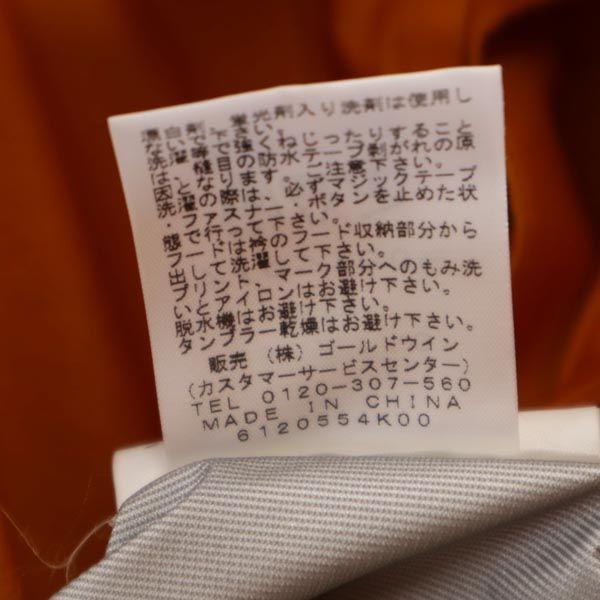 漂白剤、蛍光剤入り洗剤は使用し
ないで下さい。
・洗濯等で強くねじったりすること
は縫目の防水テープ剥がれの原
因となります。ご注意下さい。
・洗濯の際は、必ずマジックテープ
、ファスナー、ボタンを止めた状
態で行って下さい。
・フードは衿のフード収納部分から
出して洗濯して下さい。
・プリント、マーク部分へのもみ洗
いとアイロンはお避け下さい。
・脱水機はお避け下さい。
・タンブラー乾燥はお避け下さい。
販売 (株) ゴールドウイン
(カスタマーサービスセンター)
TEL 0120-307-560
MADE IN CHINA
6120554K00